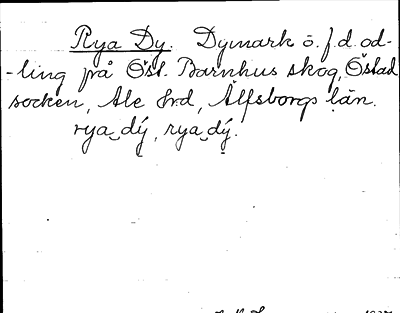 Rya Dy. Dymark ö. f. d. od-
-ling på Öst. Barnhus skog, Östad
socken, Ale hrd, Älfsborgs län.
rya‿dý, rya‿dý.